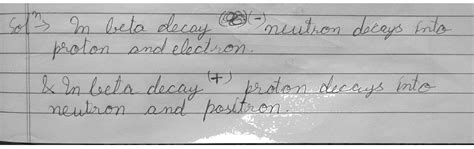 Solⁿ → In beta decay (-) neutron decays into
proton and electron.
& In beta decay (+) proton decays into
neutron and positron.